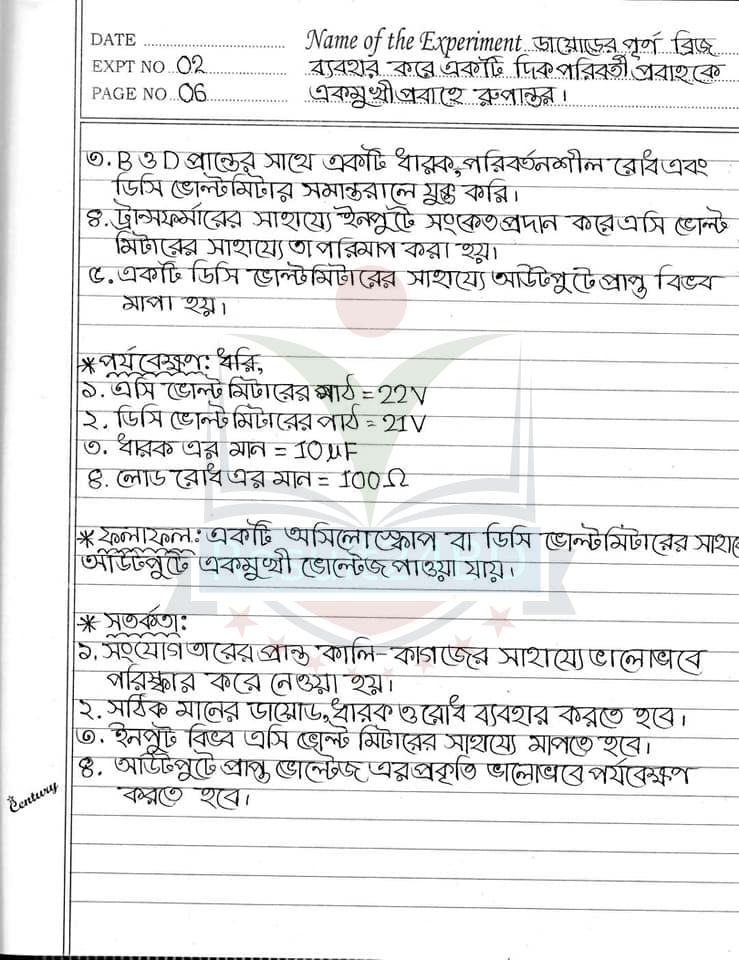 DATE
EXPT NO 02
PAGE NO 06
Name of the Experiment ডায়োডের পূর্ণ ব্রিজ
ব্যবহার করে একটি দিকপরিবর্তী প্রবাহকে
একমুখী প্রবাহে রুপান্তর।
৩. B ও D প্রান্তের সাথে একটি ধারক, পরিবর্তনশীল রোধ এবং
ডিসি ভোল্টমিটার সমান্তরালে যুক্ত করি।
৪. ট্রান্সফর্মারের সাহায্যে ইনপুটে সংকেত প্রদান করে এসি ভোল্ট
মিটারের সাহায্যে তা পরিমাপ করা হয়।
৫. একটি ডিসি ভোল্টমিটারের সাহায্যে আউটপুটে প্রাপ্ত বিভব
মাপা হয়।
*পর্যবেক্ষণ: ধরি,
১. এসি ভোল্ট মিটারের পাঠ = 22V
২. ডিসি ভোল্টমিটারের পাঠ = 21V
৩. ধারক এর মান = 10µF
৪. লোড রোধ এর মান = 100Ω
*ফলাফল: একটি অসিলোস্কোপ বা ডিসি ভোল্টমিটারের সাহায্যে
আউটপুটে একমুখী ভোল্টেজ পাওয়া যায়।
* সতর্কতা:
১. সংযোগ তারের প্রান্ত কালি-কাগজের সাহায্যে ভালোভাবে
পরিস্কার করে নেওয়া হয়।
২. সঠিক মানের ডায়োড, ধারক ও রোধ ব্যবহার করতে হবে।
৩. ইনপুট বিভব এসি ভোল্ট মিটারের সাহায্যে মাপতে হবে।
৪. আউটপুটে প্রাপ্ত ভোল্টেজ এর প্রকৃতি ভালোভাবে পর্যবেক্ষণ
করতে হবে।
Century